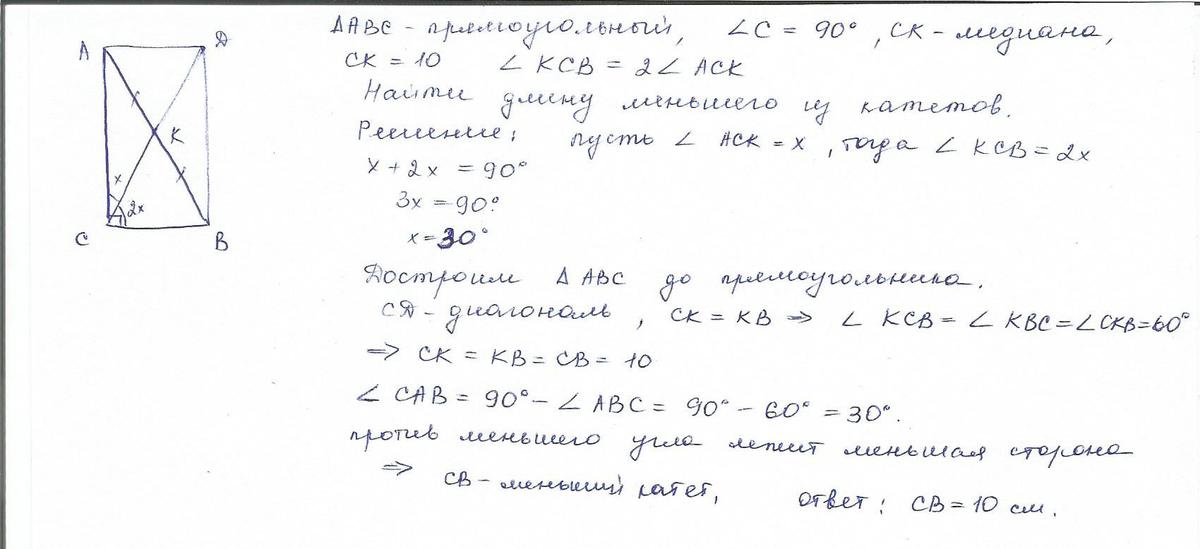 ΔABC - прямоугольный, ∠C = 90°, CK - медиана,
CK = 10 ∠KCB = 2∠ACK
Найти длину меньшего из катетов.
Решение: пусть ∠ACK = x, тогда ∠KCB = 2x
x + 2x = 90°
3x = 90°
x = 30°
Достроим ΔABC до прямоугольника.
CД - диагональ, CK = KB ⇒ ∠KCB = ∠KBC = ∠CKB = 60°
⇒ CK = KB = CB = 10
∠CAB = 90° - ∠ABC = 90° - 60° = 30°.
против меньшего угла лежит меньшая сторона
⇒ CB - меньший катет, ответ: CB = 10 см.
A Д
K
x
2x
C B